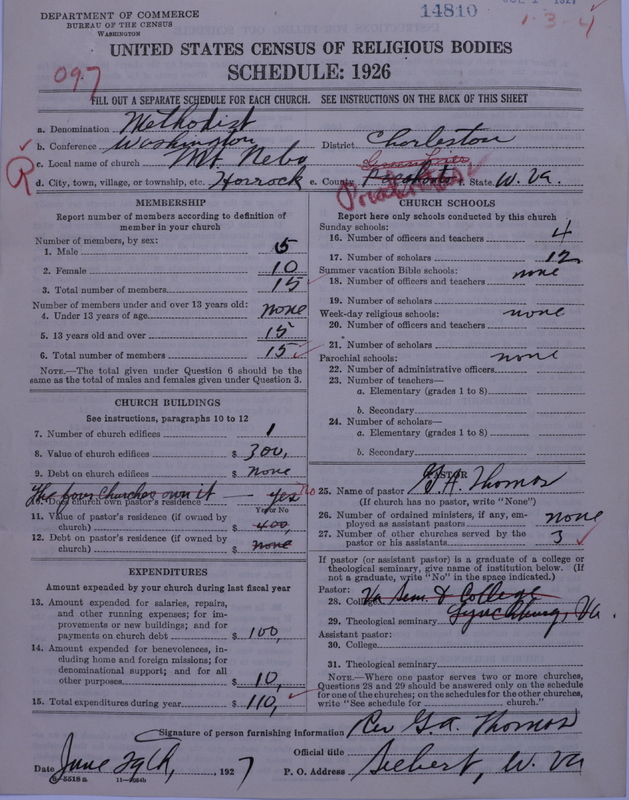 DEPARTMENT OF COMMERCE
BUREAU OF THE CENSUS
WASHINGTON
14810
1-3-4
UNITED STATES CENSUS OF RELIGIOUS BODIES
SCHEDULE: 1926
097
FILL OUT A SEPARATE SCHEDULE FOR EACH CHURCH. SEE INSTRUCTIONS ON THE BACK OF THIS SHEET
a. Denomination Methodist
b. Conference Washington District Charleston
c. Local name of church Mt. Nebo
R
Greenbrier
d. City, town, village, or township, etc. Horrock e. County Pocahontas f. State W. Va.
MEMBERSHIP
Report number of members according to definition of member in your church
Number of members, by sex:
1. Male 5
2. Female 10
3. Total number of members 15
Number of members under and over 13 years old:
4. Under 13 years of age none
5. 13 years old and over 15
6. Total number of members 15
NOTE.—The total given under Question 6 should be same as the total of males and females given under Question 3.
CHURCH BUILDINGS
See instructions, paragraphs 10 to 12
7. Number of church edifices 1
8. Value of church edifices $ 300,
9. Debt on church edifices $ none
The four Churches own it — yes No
10. Does church own pastor's residence
Yes or No
11. Value of pastor's residence (if owned by church) $ 400,
12. Debt on pastor's residence (if owned by church) $ none
EXPENDITURES
Amount expended by your church during last fiscal year
13. Amount expended for salaries, repairs, and other running expenses; for improvements or new buildings; and for payments on church debt $ 100,
14. Amount expended for benevolences, including home and foreign missions; for denominational support; and for all other purposes $ 10,
15. Total expenditures during year $ 110,
CHURCH SCHOOLS
Report here only schools conducted by this church
Sunday schools:
16. Number of officers and teachers 4
17. Number of scholars 12
Summer vacation Bible schools: none
18. Number of officers and teachers
19. Number of scholars
Week-day religious schools: none
20. Number of officers and teachers
21. Number of scholars
Parochial schools: none
22. Number of administrative officers
23. Number of teachers—
a. Elementary (grades 1 to 8)
b. Secondary
24. Number of scholars—
a. Elementary (grades 1 to 8)
b. Secondary
PASTOR
25. Name of pastor G. A. Thomas
(If church has no pastor, write "None")
26. Number of ordained ministers, if any, employed as assistant pastors none
27. Number of other churches served by the pastor or his assistants 3
If pastor (or assistant pastor) is a graduate of a college or theological seminary, give name of institution below. (If not a graduate, write "No" in the space indicated.)
Pastor:
28. College Va Sem. & College
29. Theological seminary Lynchburg, Va.
Assistant pastor:
30. College
31. Theological seminary
NOTE.—Where one pastor serves two or more churches, Questions 28 and 29 should be answered only on the schedule for one of the churches; on the schedules for the other churches, write "See schedule for church."
Signature of person furnishing information Rev G. A. Thomas
Official title
Date June 29th, 1927 P. O. Address Seebert, W. Va